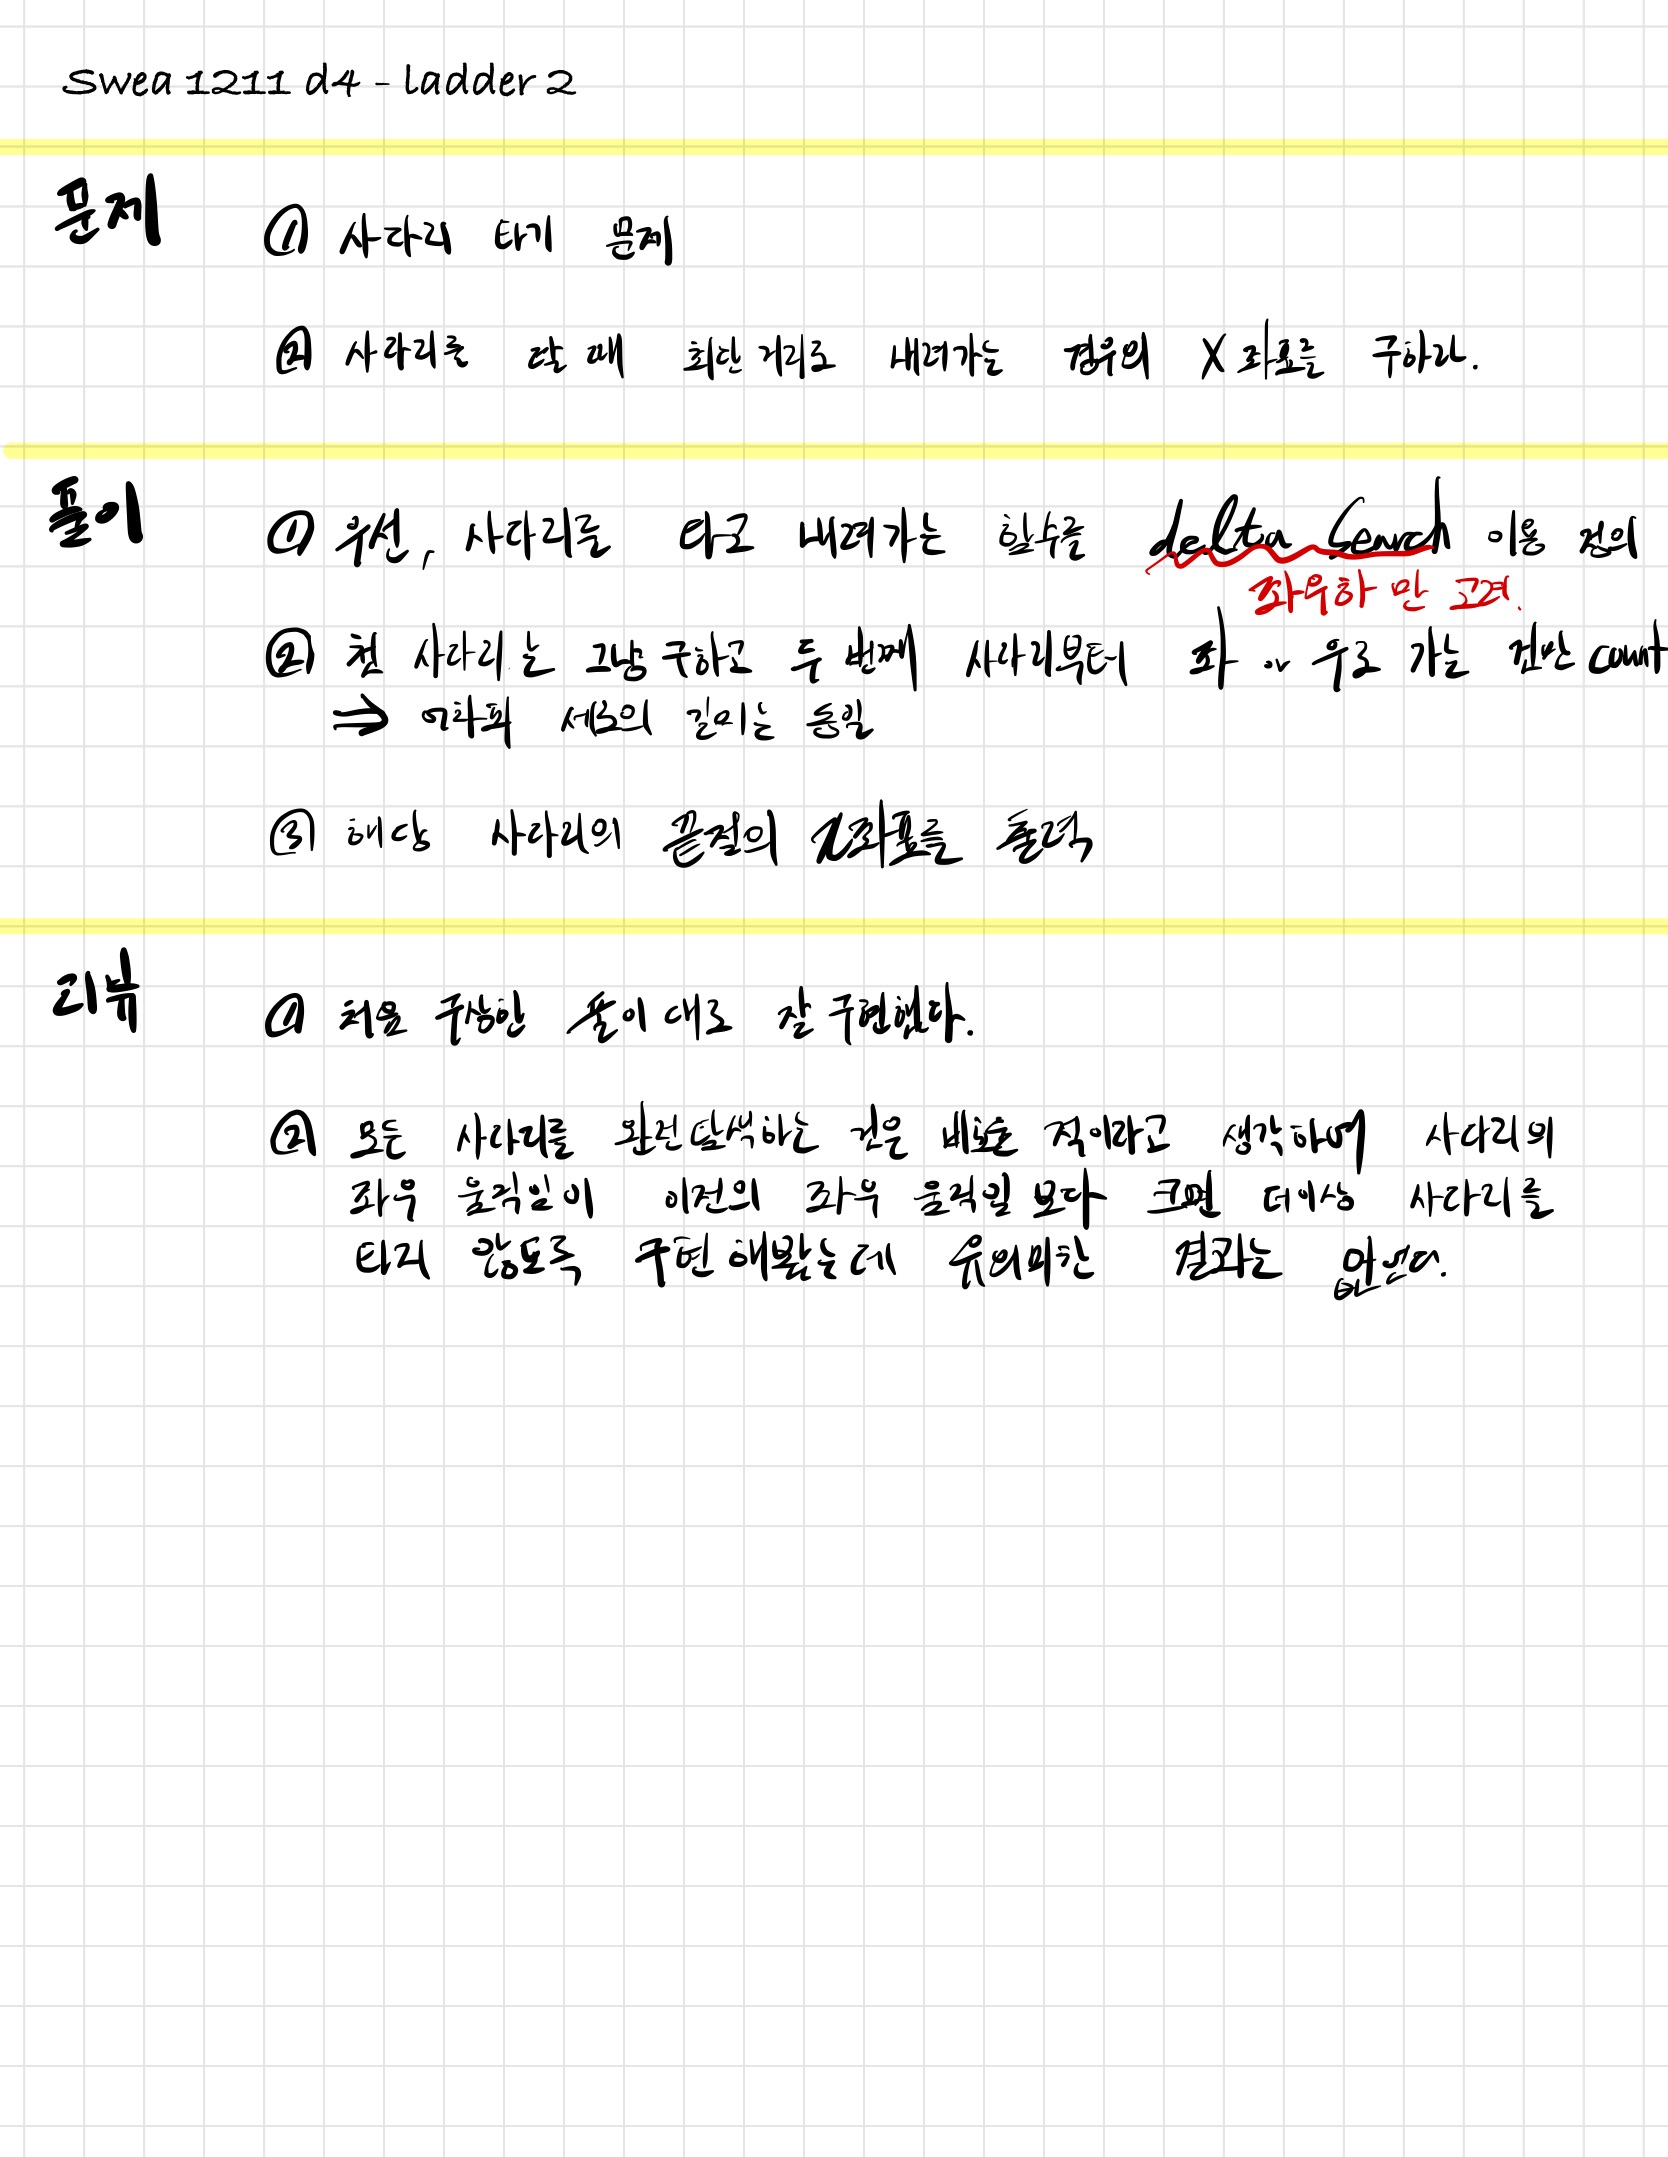 Swea 1211 d4 - ladder 2
문제
① 사다리 타기 문제
② 사다리를 탈 때 최단 거리로 내려가는 경우의 X 좌표를 구하라.
풀이
① 우선, 사다리를 타고 내려가는 함수를 delta Search 이용 정의
좌우하 만 고려.
② 첫 사다리는 그냥 구하고 두 번째 사다리부터 좌 or 우로 가는 것만 count
⇒ 어차피 세로의 길이는 동일
③ 해당 사다리의 끝점의 x좌표를 출력
리뷰
① 처음 구상한 풀이 대로 잘 구현했다.
② 모든 사다리를 완전탐색하는 것은 비효율 적이라고 생각하여 사다리의
좌우 움직임이 이전의 좌우 움직일 보다 크면 더이상 사다리를
타지 않도록 구현 해봤는데 유의미한 결과는 없었다.